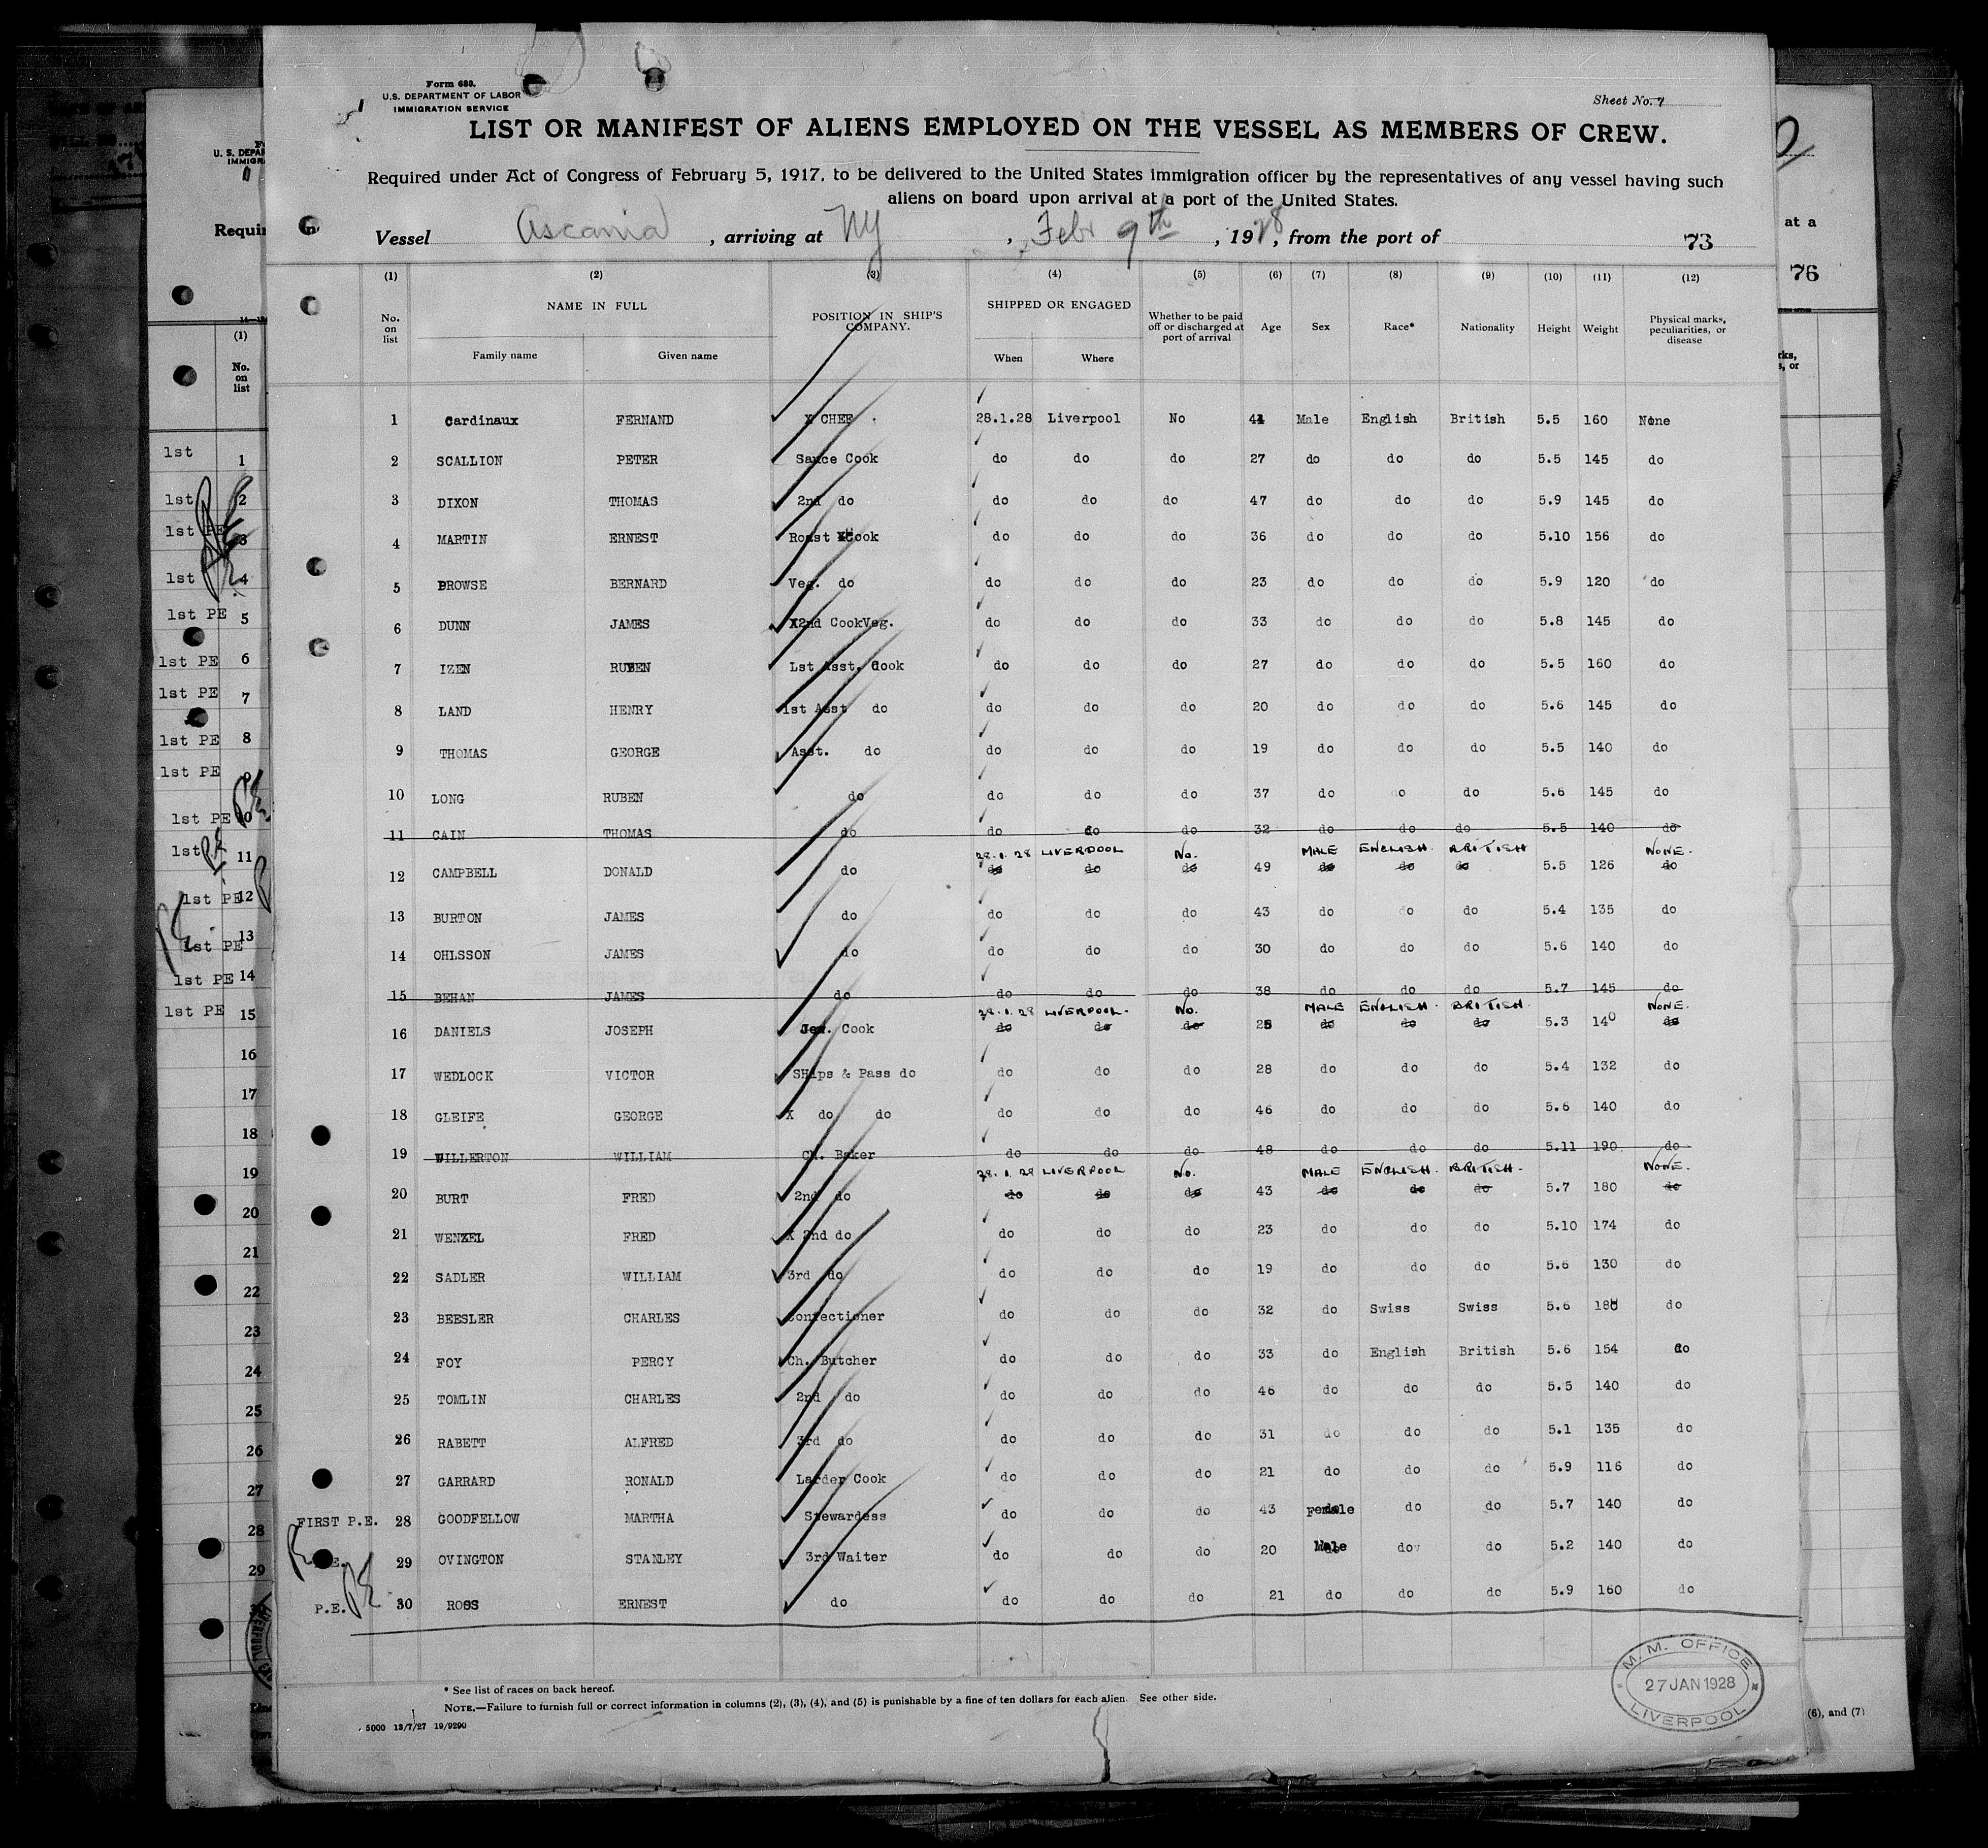 Form 680.
U.S. DEPARTMENT OF LABOR
IMMIGRATION SERVICE
Sheet No. 7
LIST OR MANIFEST OF ALIENS EMPLOYED ON THE VESSEL AS MEMBERS OF CREW.
Required under Act of Congress of February 5, 1917, to be delivered to the United States immigration officer by the representatives of any vessel having such
aliens on board upon arrival at a port of the United States.
Vessel Ascania, arriving at NY, Febr 9th, 1928, from the port of 73
(1) (2) (3) (4) (5) (6) (7) (8) (9) (10) (11) (12)
No. on list NAME IN FULL Family name Given name POSITION IN SHIP'S COMPANY. SHIPPED OR ENGAGED When Where Whether to be paid off or discharged at port of arrival Age Sex Race* Nationality Height Weight Physical marks, peculiarities, or disease
1 Cardinaux FERNAND X CHEF 28.1.28 Liverpool No 44 Male English British 5.5 160 None
2 SCALLION PETER Sauce Cook do do do 27 do do do 5.5 145 do
3 DIXON THOMAS 2nd do do do do 47 do do do 5.9 145 do
4 MARTIN ERNEST Roast Cook do do do 36 do do do 5.10 156 do
5 PROWSE BERNARD Veg. do do do do 23 do do do 5.9 120 do
6 DUNN JAMES X2nd CookVeg. do do do 33 do do do 5.8 145 do
7 IZEN RUBEN Lst Asst. Cook do do do 27 do do do 5.5 160 do
8 LAND HENRY 1st Asst do do do do 20 do do do 5.6 145 do
9 THOMAS GEORGE Asst. do do do do 19 do do do 5.5 140 do
10 LONG RUBEN do do do do 37 do do do 5.6 145 do
11 CAIN THOMAS do do do do 32 do do do 5.5 140 do
28.1.28 LIVERPOOL No. MALE ENGLISH. BRITISH NONE.
12 CAMPBELL DONALD do do do do 49 do do do 5.5 126 do
13 BURTON JAMES do do do do 43 do do do 5.4 135 do
14 OHLSSON JAMES do do do do 30 do do do 5.6 140 do
15 BEHAN JAMES do do do do 38 do do do 5.7 145 do
28.1.28 LIVERPOOL. No. MALE ENGLISH. BRITISH. NONE.
16 DANIELS JOSEPH Jew. Cook do do do do do do 5.3 140 do
17 WEDLOCK VICTOR SHips & Pass do do do do 28 do do do 5.4 132 do
18 GLEIFE GEORGE X do do do do do 46 do do do 5.6 140 do
19 WILLERTON WILLIAM Ch. Baker do do do 48 do do do 5.11 190 do
28.1.28 LIVERPOOL No. MALE ENGLISH. BRITISH. NONE.
20 BURT FRED 2nd do do do do 43 do do do 5.7 180 do
21 WENZEL FRED X 2nd do do do do 23 do do do 5.10 174 do
22 SADLER WILLIAM 3rd do do do do 19 do do do 5.6 130 do
23 BEESLER CHARLES Confectioner do do do 32 do Swiss Swiss 5.6 do
24 FOY PERCY Ch. Butcher do do do 33 do English British 5.6 154 do
25 TOMLIN CHARLES 2nd do do do do 46 do do do 5.5 140 do
26 RABETT ALFRED 3rd do do do do 31 do do do 5.1 135 do
27 GARRARD RONALD Larder Cook do do do 21 do do do 5.9 116 do
FIRST P.E. 28 GOODFELLOW MARTHA Stewardess do do do 43 Female do do 5.7 140 do
29 OVINGTON STANLEY 3rd Waiter do do do 20 Male do do 5.2 140 do
P.E. PE 30 ROSS ERNEST do do do do 21 do do do 5.9 160 do
* See list of races on back hereof.
NOTE.—Failure to furnish full or correct information in columns (2), (3), (4), and (5) is punishable by a fine of ten dollars for each alien. See other side.
5000 13/7/27 19/9290
M.M. OFFICE
27 JAN 1928
LIVERPOOL
U.S. DEPAR
IMMIGR
Requir
(1)
No.
on
list
1st 1
1st 2
1st PE 3
1st 4
1st PE 5
1st PE 6
1st PE 7
1st PE 8
1st PE 9
1st PE 10
1st PE 11
1st PE 12
1st PE 13
1st PE 14
1st PE 15
16
17
18
19
20
21
22
23
24
25
26
27
28
29
at a
76
(6), and (7)